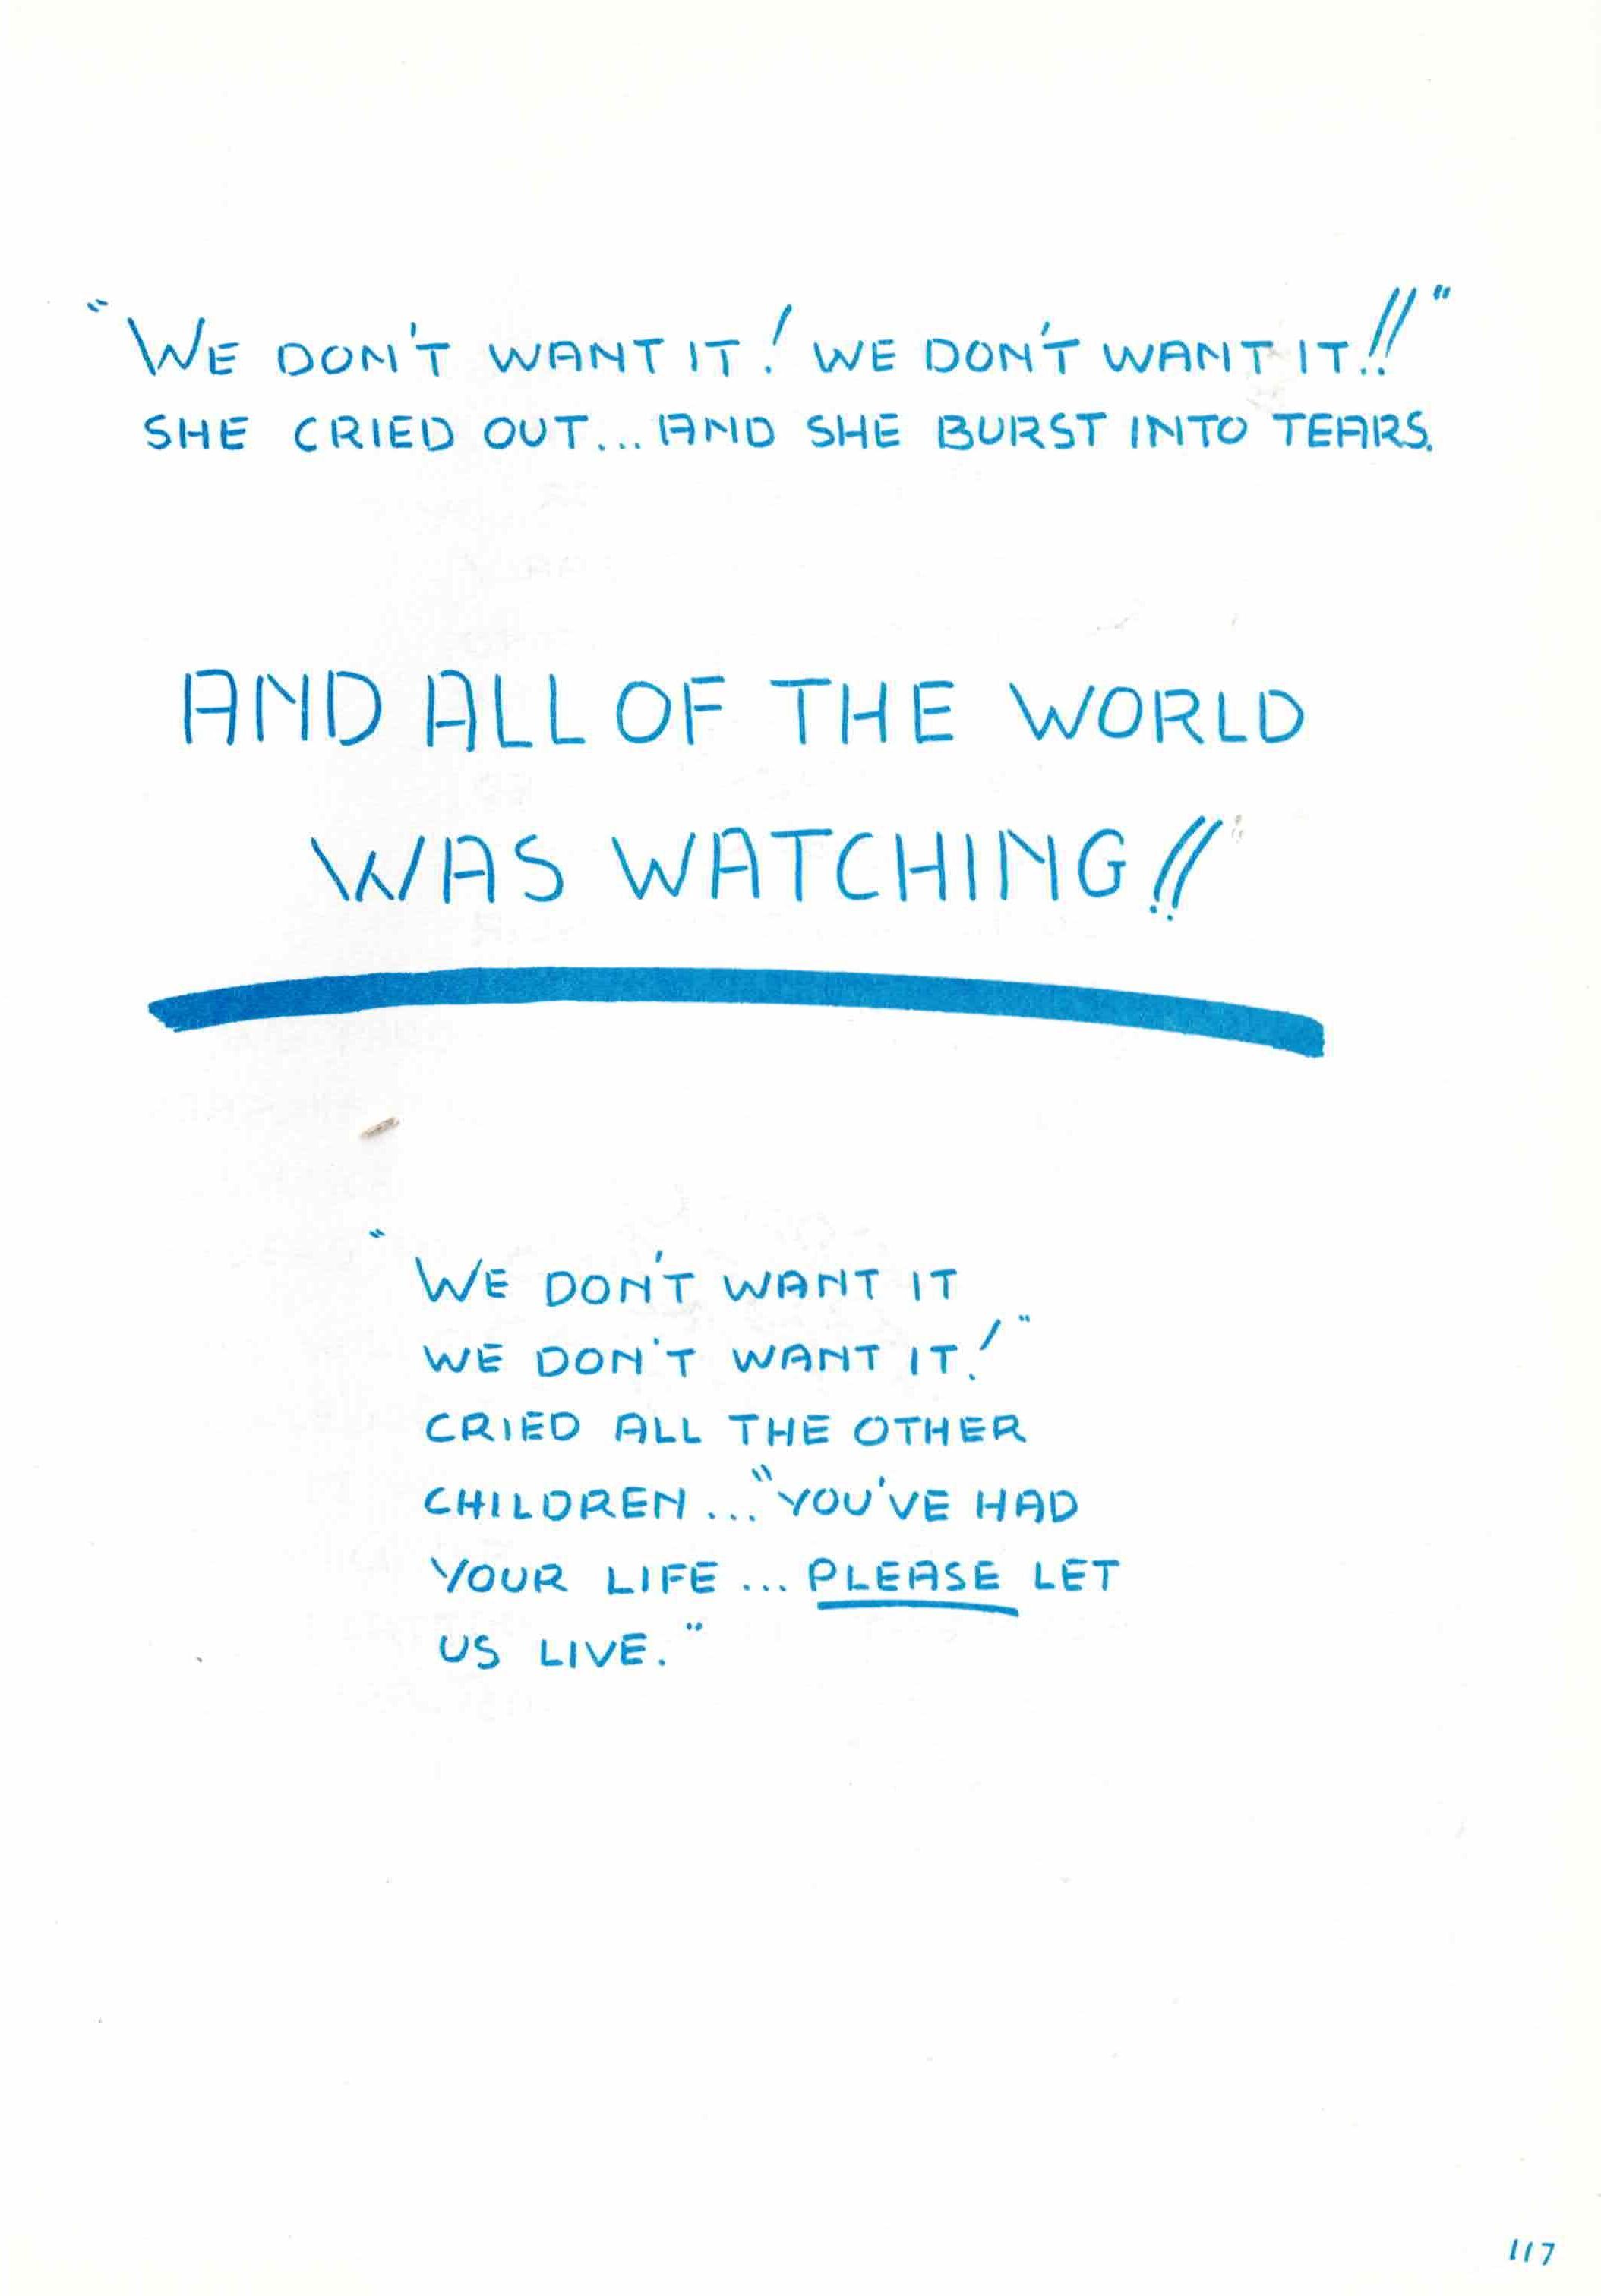 "WE DON'T WANT IT! WE DON'T WANT IT!!"
SHE CRIED OUT... AND SHE BURST INTO TEARS.
AND ALL OF THE WORLD
WAS WATCHING!!
"WE DON'T WANT IT
WE DON'T WANT IT!"
CRIED ALL THE OTHER
CHILDREN... "YOU'VE HAD
YOUR LIFE... PLEASE LET
US LIVE."
117